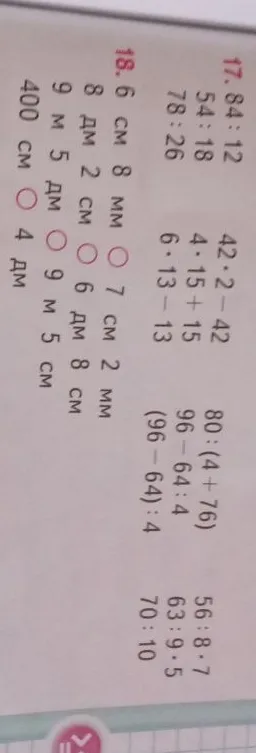 17. 84 : 12 42 · 2 − 42 80 : (4 + 76) 56 : 8 · 7
54 : 18 4 · 15 + 15 96 − 64 : 4 63 : 9 · 5
78 : 26 6 · 13 − 13 (96 − 64) : 4 70 : 10
18. 6 см 8 мм ○ 7 см 2 мм
8 дм 2 см ○ 6 дм 8 см
9 м 5 дм ○ 9 м 5 см
400 см ○ 4 дм